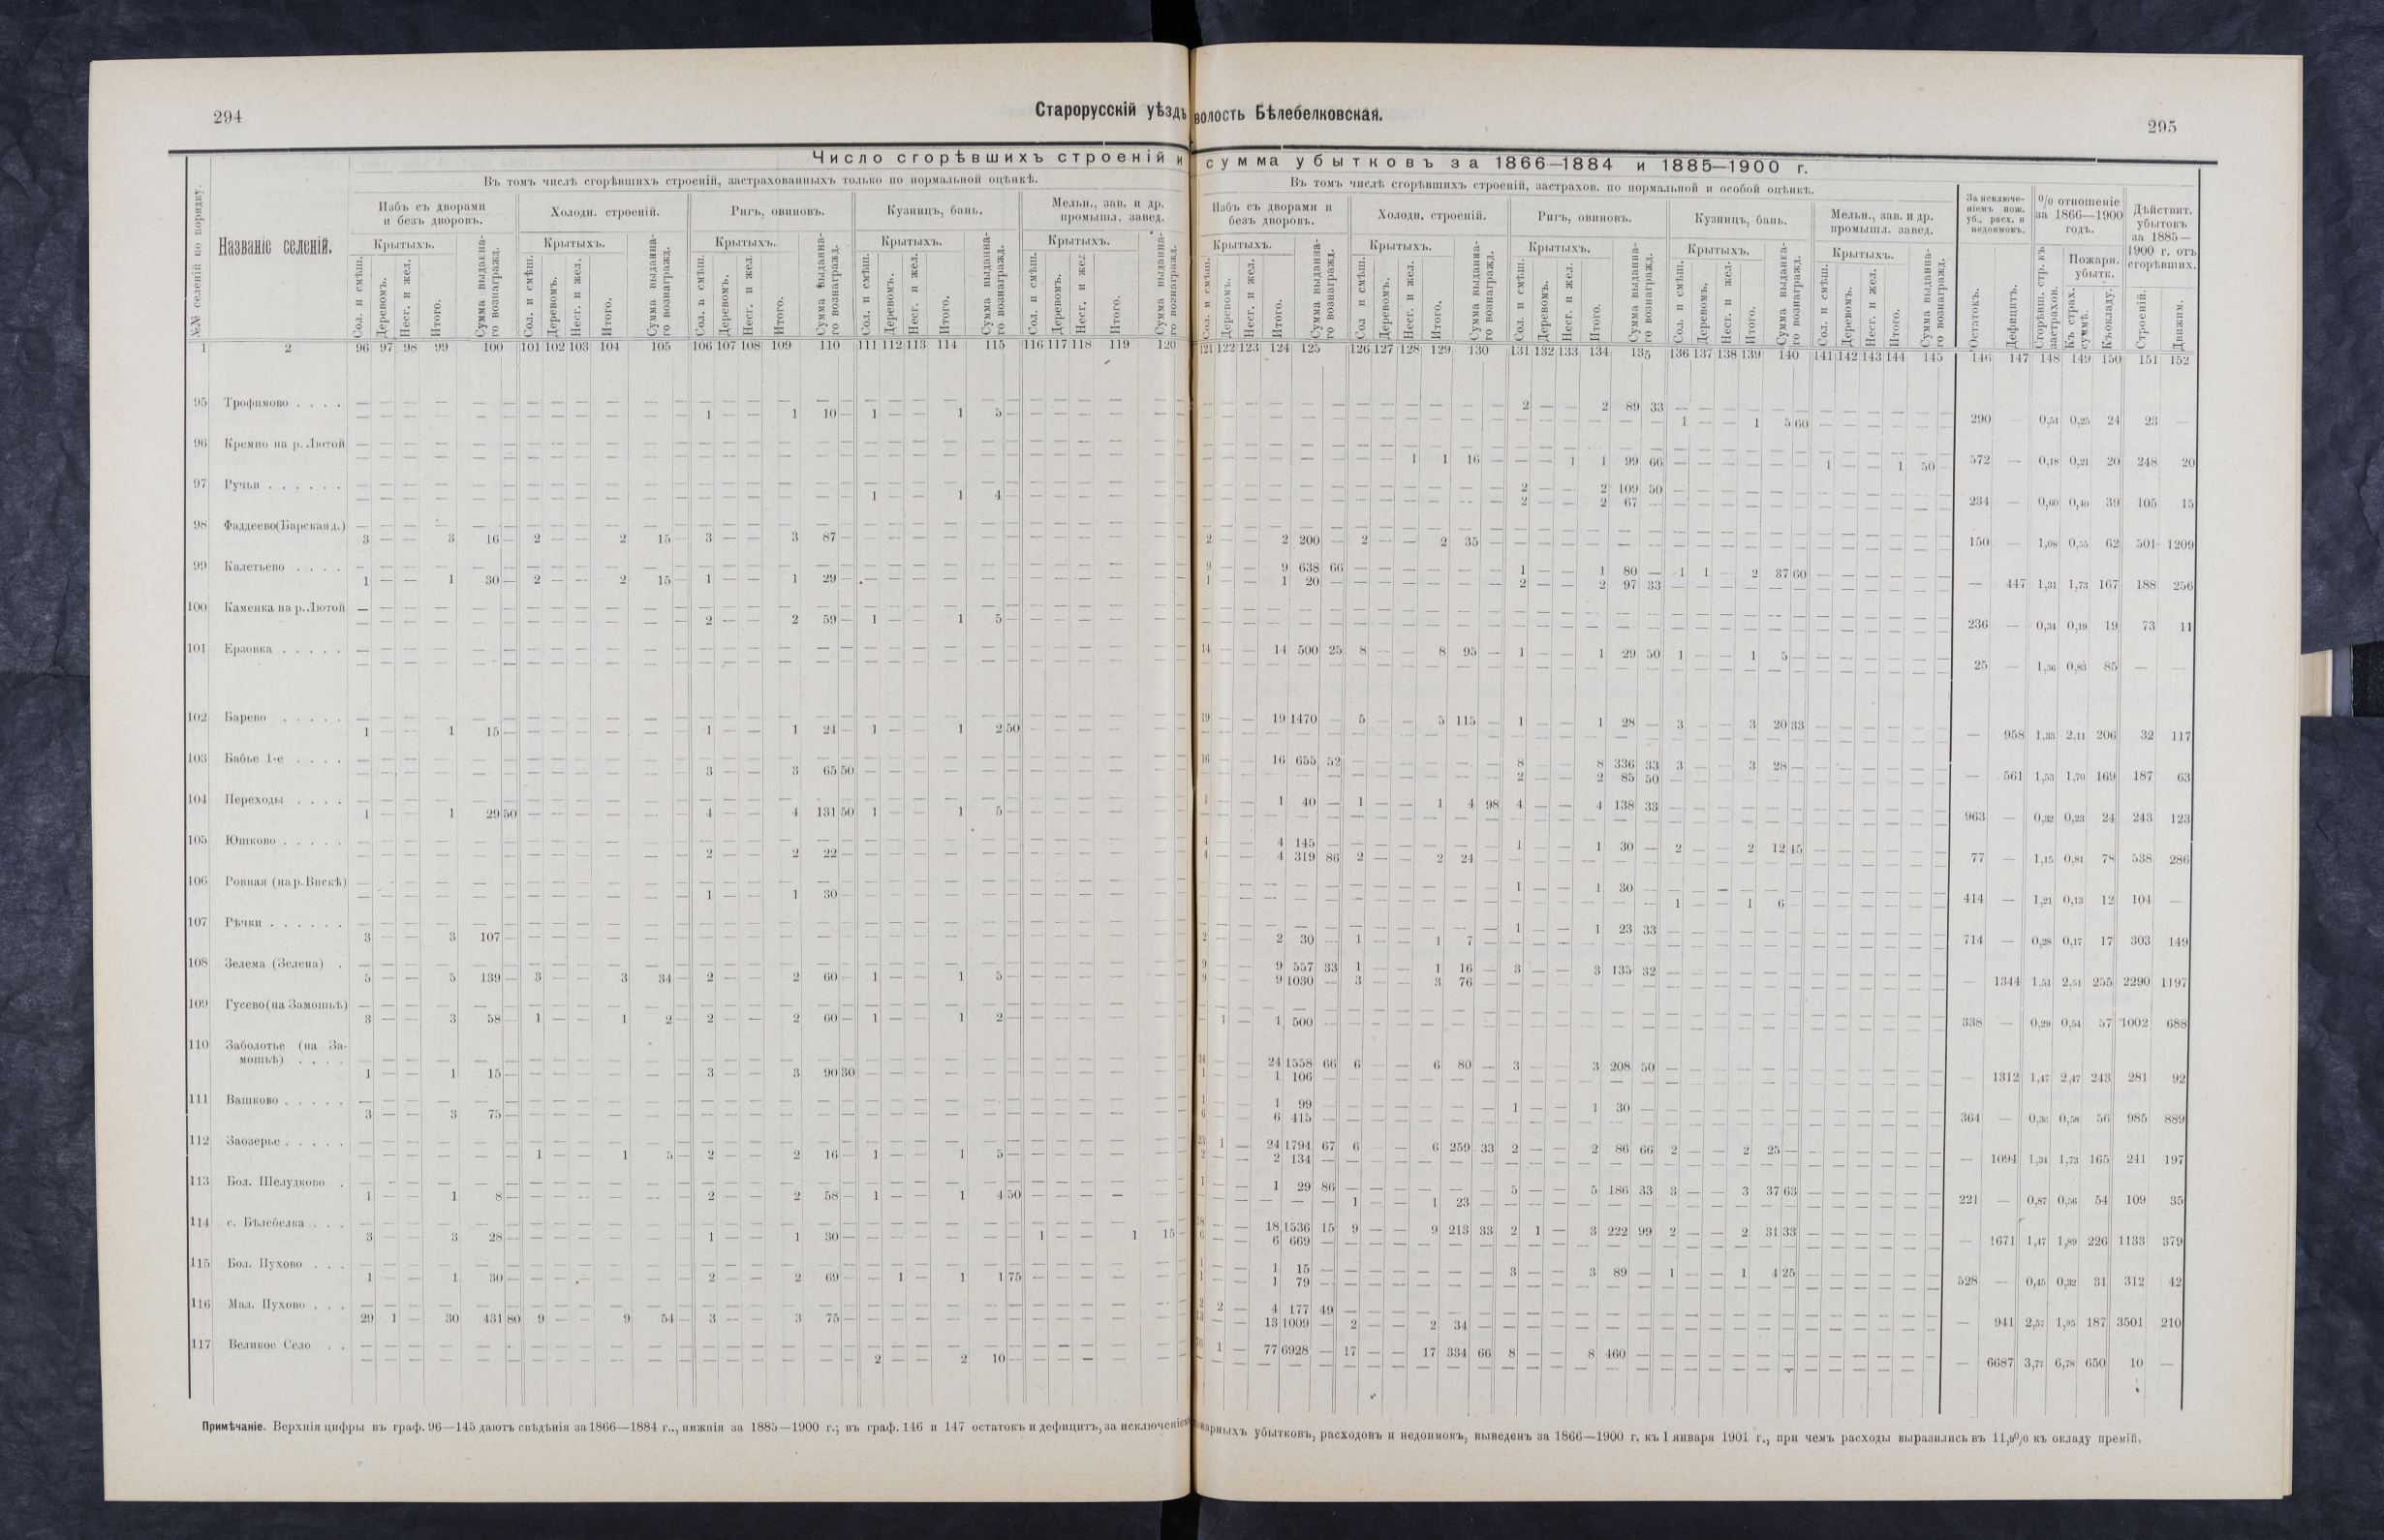 294
Старорусскій уѣздъ
волость Бѣлебелковская.
295
Число сгорѣвшихъ строеній и сумма убытковъ за 1866—1884 и 1885—1900 г.
Въ томъ числѣ сгорѣвшихъ строеній, застрахованныхъ только по нормальной оцѣнкѣ.
Въ томъ числѣ сгорѣвшихъ строеній, застрахов. по нормальной и особой оцѣнкѣ.
№№ селеній по порядку.
Названіе селеній.
Избъ съ дворами и безъ дворовъ.
Холодн. строеній.
Ригъ, овиновъ.
Кузницъ, бань.
Мельн., зав. и др. промышл. завед.
Крытыхъ.
Сол. и смѣш.
Деревомъ.
Несг. и жел.
Итого.
Сумма выданнаго вознагражд.
За исключеніемъ пож. уб., расх. и недоимокъ.
Остатокъ.
Дефицитъ.
% отношеніе за 1866—1900 годъ.
Сгорѣвш. стр. къ застрахов.
Пожарн. убытк.
Къ страх. суммѣ.
Къ окладу.
Дѣйствит. убытокъ за 1885—1900 г. отъ сгорѣвших.
Строеній.
Движим.
1 2 96 97 98 99 100 101 102 103 104 105 106 107 108 109 110 111 112 113 114 115 116 117 118 119 120 121 122 123 124 125 126 127 128 129 130 131 132 133 134 135 136 137 138 139 140 141 142 143 144 145 146 147 148 149 150 151 152
95 Трофимово . . . . 2 — — 2 89 33
1 — — 1 10 — 1 — — 1 5 — 1 — — 1 5 60 290 — 0,51 0,25 24 23 —
96 Кремно на р. Лютой
1 1 16 — — — 1 1 99 66 1 — — 1 50 — 572 — 0,18 0,21 20 248 20
97 Ручьи . . . . . . 2 — — 2 109 50
1 — — 1 4 — 2 — — 2 67 — 234 — 0,60 0,40 39 105 15
98 Фаддеево (Барская д.)
3 — — 3 16 — 2 — — 2 15 — 3 — — 3 87 — 2 — — 2 200 — 2 — — 2 35 — 150 — 1,08 0,55 62 501 1209
99 Калетьево . . . . 9 — — 9 638 66 1 — — 1 80 — 1 1 — 2 37 60
1 — — 1 30 — 2 — — 2 15 — 1 — — 1 29 — 1 — — 1 20 — 2 — — 2 97 33 — 447 1,31 1,73 167 188 256
100 Каменка на р. Лютой
2 — — 2 59 — 1 — — 1 5 — 236 — 0,34 0,19 19 73 11
101 Ерзовка . . . . . 14 — — 14 500 25 8 — — 8 95 — 1 — — 1 29 50 1 — — 1 5 —
25 — 1,36 0,83 85 — —
102 Барево . . . . . 19 — — 19 1470 — 5 — — 5 115 — 1 — — 1 28 — 3 — — 3 20 33
1 — — 1 15 — 1 — — 1 24 — 1 — — 1 2 50 — 958 1,33 2,11 206 32 117
103 Бабье 1-е . . . . 16 — — 16 655 52 8 — — 8 336 33 3 — — 3 28 —
3 — — 3 65 50 2 — — 2 85 50 — 561 1,53 1,70 169 187 63
104 Переходы . . . . 1 — — 1 40 — 1 — — 1 4 98 4 — — 4 138 33
1 — — 1 29 50 4 — — 4 131 50 1 — — 1 5 — 963 — 0,32 0,23 24 243 123
105 Юшково . . . . . 4 — — 4 145 — 1 — — 1 30 — 2 — — 2 12 45
2 — — 2 22 — 4 — — 4 319 86 2 — — 2 24 — 77 — 1,15 0,81 78 538 286
106 Ровная (на р. Вискѣ) 1 — — 1 30 —
1 — — 1 30 — 1 — — 1 6 — 414 — 1,21 0,13 12 104 —
107 Рѣчки . . . . . . 1 — — 1 23 33
3 — — 3 107 — 2 — — 2 30 — 1 — — 1 7 — 714 — 0,28 0,17 17 303 149
108 Зелема (Зелена) . 9 — — 9 557 33 1 — — 1 16 — 3 — — 3 135 32
5 — — 5 139 — 3 — — 3 34 — 2 — — 2 60 — 1 — — 1 5 — 9 — — 9 1030 — 3 — — 3 76 — — 1344 1,51 2,51 255 2290 1197
109 Гусево (на Замошьѣ)
3 — — 3 58 — 1 — — 1 2 — 2 — — 2 60 — 1 — — 1 2 — — 1 — 1 500 — 338 — 0,29 0,54 57 1002 688
110 Заболотье (на Замошьѣ) . . . . 24 — — 24 1558 66 6 — — 6 80 — 3 — — 3 208 50
1 — — 1 15 — 3 — — 3 90 30 1 — — 1 106 — — 1312 1,47 2,47 243 281 92
111 Вашково . . . . . 1 — — 1 99 — 1 — — 1 30 —
3 — — 3 75 — 6 — — 6 415 — 364 — 0,36 0,58 56 985 889
112 Заозерье . . . . . 23 1 — 24 1794 67 6 — — 6 259 33 2 — — 2 86 66 2 — — 2 25 —
1 — — 1 5 — 2 — — 2 16 — 1 — — 1 5 — 2 — — 2 134 — — 1094 1,34 1,73 165 241 197
113 Бол. Шелудково . 1 — — 1 29 86 5 — — 5 186 33 3 — — 3 37 63
1 — — 1 8 — 2 — — 2 58 — 1 — — 1 4 50 1 — — 1 23 — 221 — 0,87 0,56 54 109 35
114 с. Бѣлебелка . . . 18 — — 18 1536 15 9 — — 9 213 33 2 1 — 3 222 99 2 — — 2 31 33
3 — — 3 28 — 1 — — 1 30 — 1 — — 1 15 — 6 — — 6 669 — — 1671 1,47 1,89 226 1133 379
115 Бол. Пухово . . . 1 — — 1 15 — 3 — — 3 89 — 1 — — 1 4 25
1 — — 1 30 — 2 — — 2 69 — — 1 — 1 1 75 1 — — 1 79 — 528 — 0,45 0,32 31 312 42
116 Мал. Пухово . . . 2 2 — 4 177 49
29 1 — 30 431 80 9 — — 9 54 — 3 — — 3 75 — 13 — — 13 1009 — 2 — — 2 34 — — 941 2,57 1,95 187 3501 210
117 Великое Село . . 1 — 77 6928 — 17 — — 17 334 66 8 — — 8 460 —
2 — — 2 10 — — 6687 3,77 6,78 650 10 —
Примѣчаніе. Верхнія цифры въ граф. 96—145 даютъ свѣдѣнія за 1866—1884 г., нижнія за 1885—1900 г.; въ граф. 146 и 147 остатокъ и дефицитъ, за исключеніемъ пожарныхъ убытковъ, расходовъ и недоимокъ, выведенъ за 1866—1900 г. къ 1 января 1901 г., при чемъ расходы выразились въ 11,9% къ окладу премій.